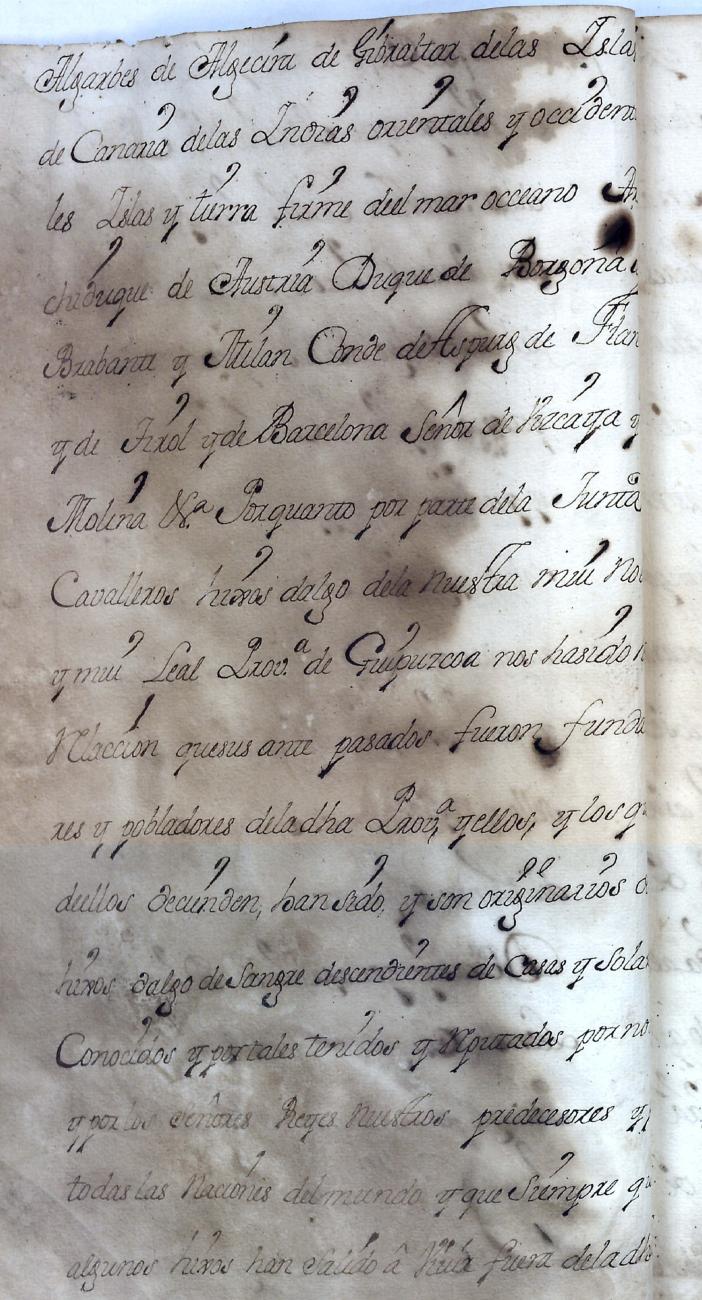 Algarbes de Algecira de Gibraltar delas Islas
de Canaria delas Indias orientales y occident
les Islas y tierra firme deel mar occeano Ar
chiduque de Austria Duque de Borgoña
Brabante y Milan Conde de Aspurg de Flan
y de Tirol y de Barcelona Señor de Vizcaya y
Molina &ª Porquanto por parte dela Junta
Cavalleros hixos dalgo dela nuestra mui No
y mui Leal Provª de Guipuzcoa nos hasido
Relaccion quesus ante pasados fueron funda
res y pobladores deladha Provª y ellos, y los q
deellos decienden, han sido, y son originarios
hixos dalgo de Sangre descendientes de Casas y Sola
Conocidos y portales tenidos y Reputados por no
y por los Señores Reyes Nuestros predecesores y
todas las Naciones del mundo y que Siempre q
algunos hixos han salido â fuera deladh